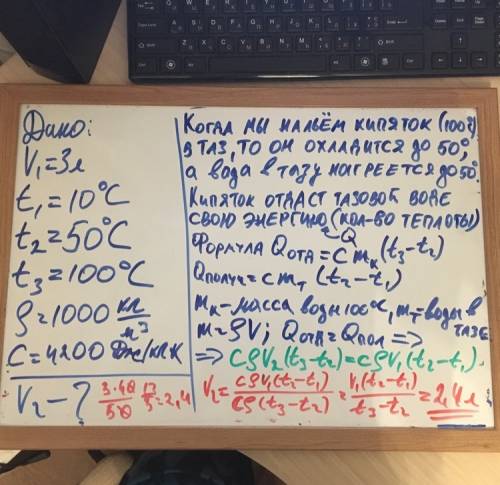 Дано:
V₁=3л
t₁=10°C
t₂=50°C
t₃=100°C
ρ=1000 кг/м³
C=4200 Дж/кгК
V₂-? 3·40/50 12/5=2,4
Когда мы нальём кипяток (100°)
в таз, то он охладится до 50°,
а вода в тазу нагреется до 50°.
Кипяток отдаст тазовой воде
свою энергию (кол-во теплоты)
Q
Формула Qотд=cmк(t₃-t₂)
Qполуч=cmт(t₂-t₁)
mк-масса воды 100°C, mт-воды в
тазе
m=ρV; Qотд=Qпол =>
=> CρV₂(t₃-t₂)=CρV₁(t₂-t₁).
V₂=CρV₁(t₂-t₁)/Cρ(t₃-t₂)=V₁(t₂-t₁)/t₃-t₂=2,4л